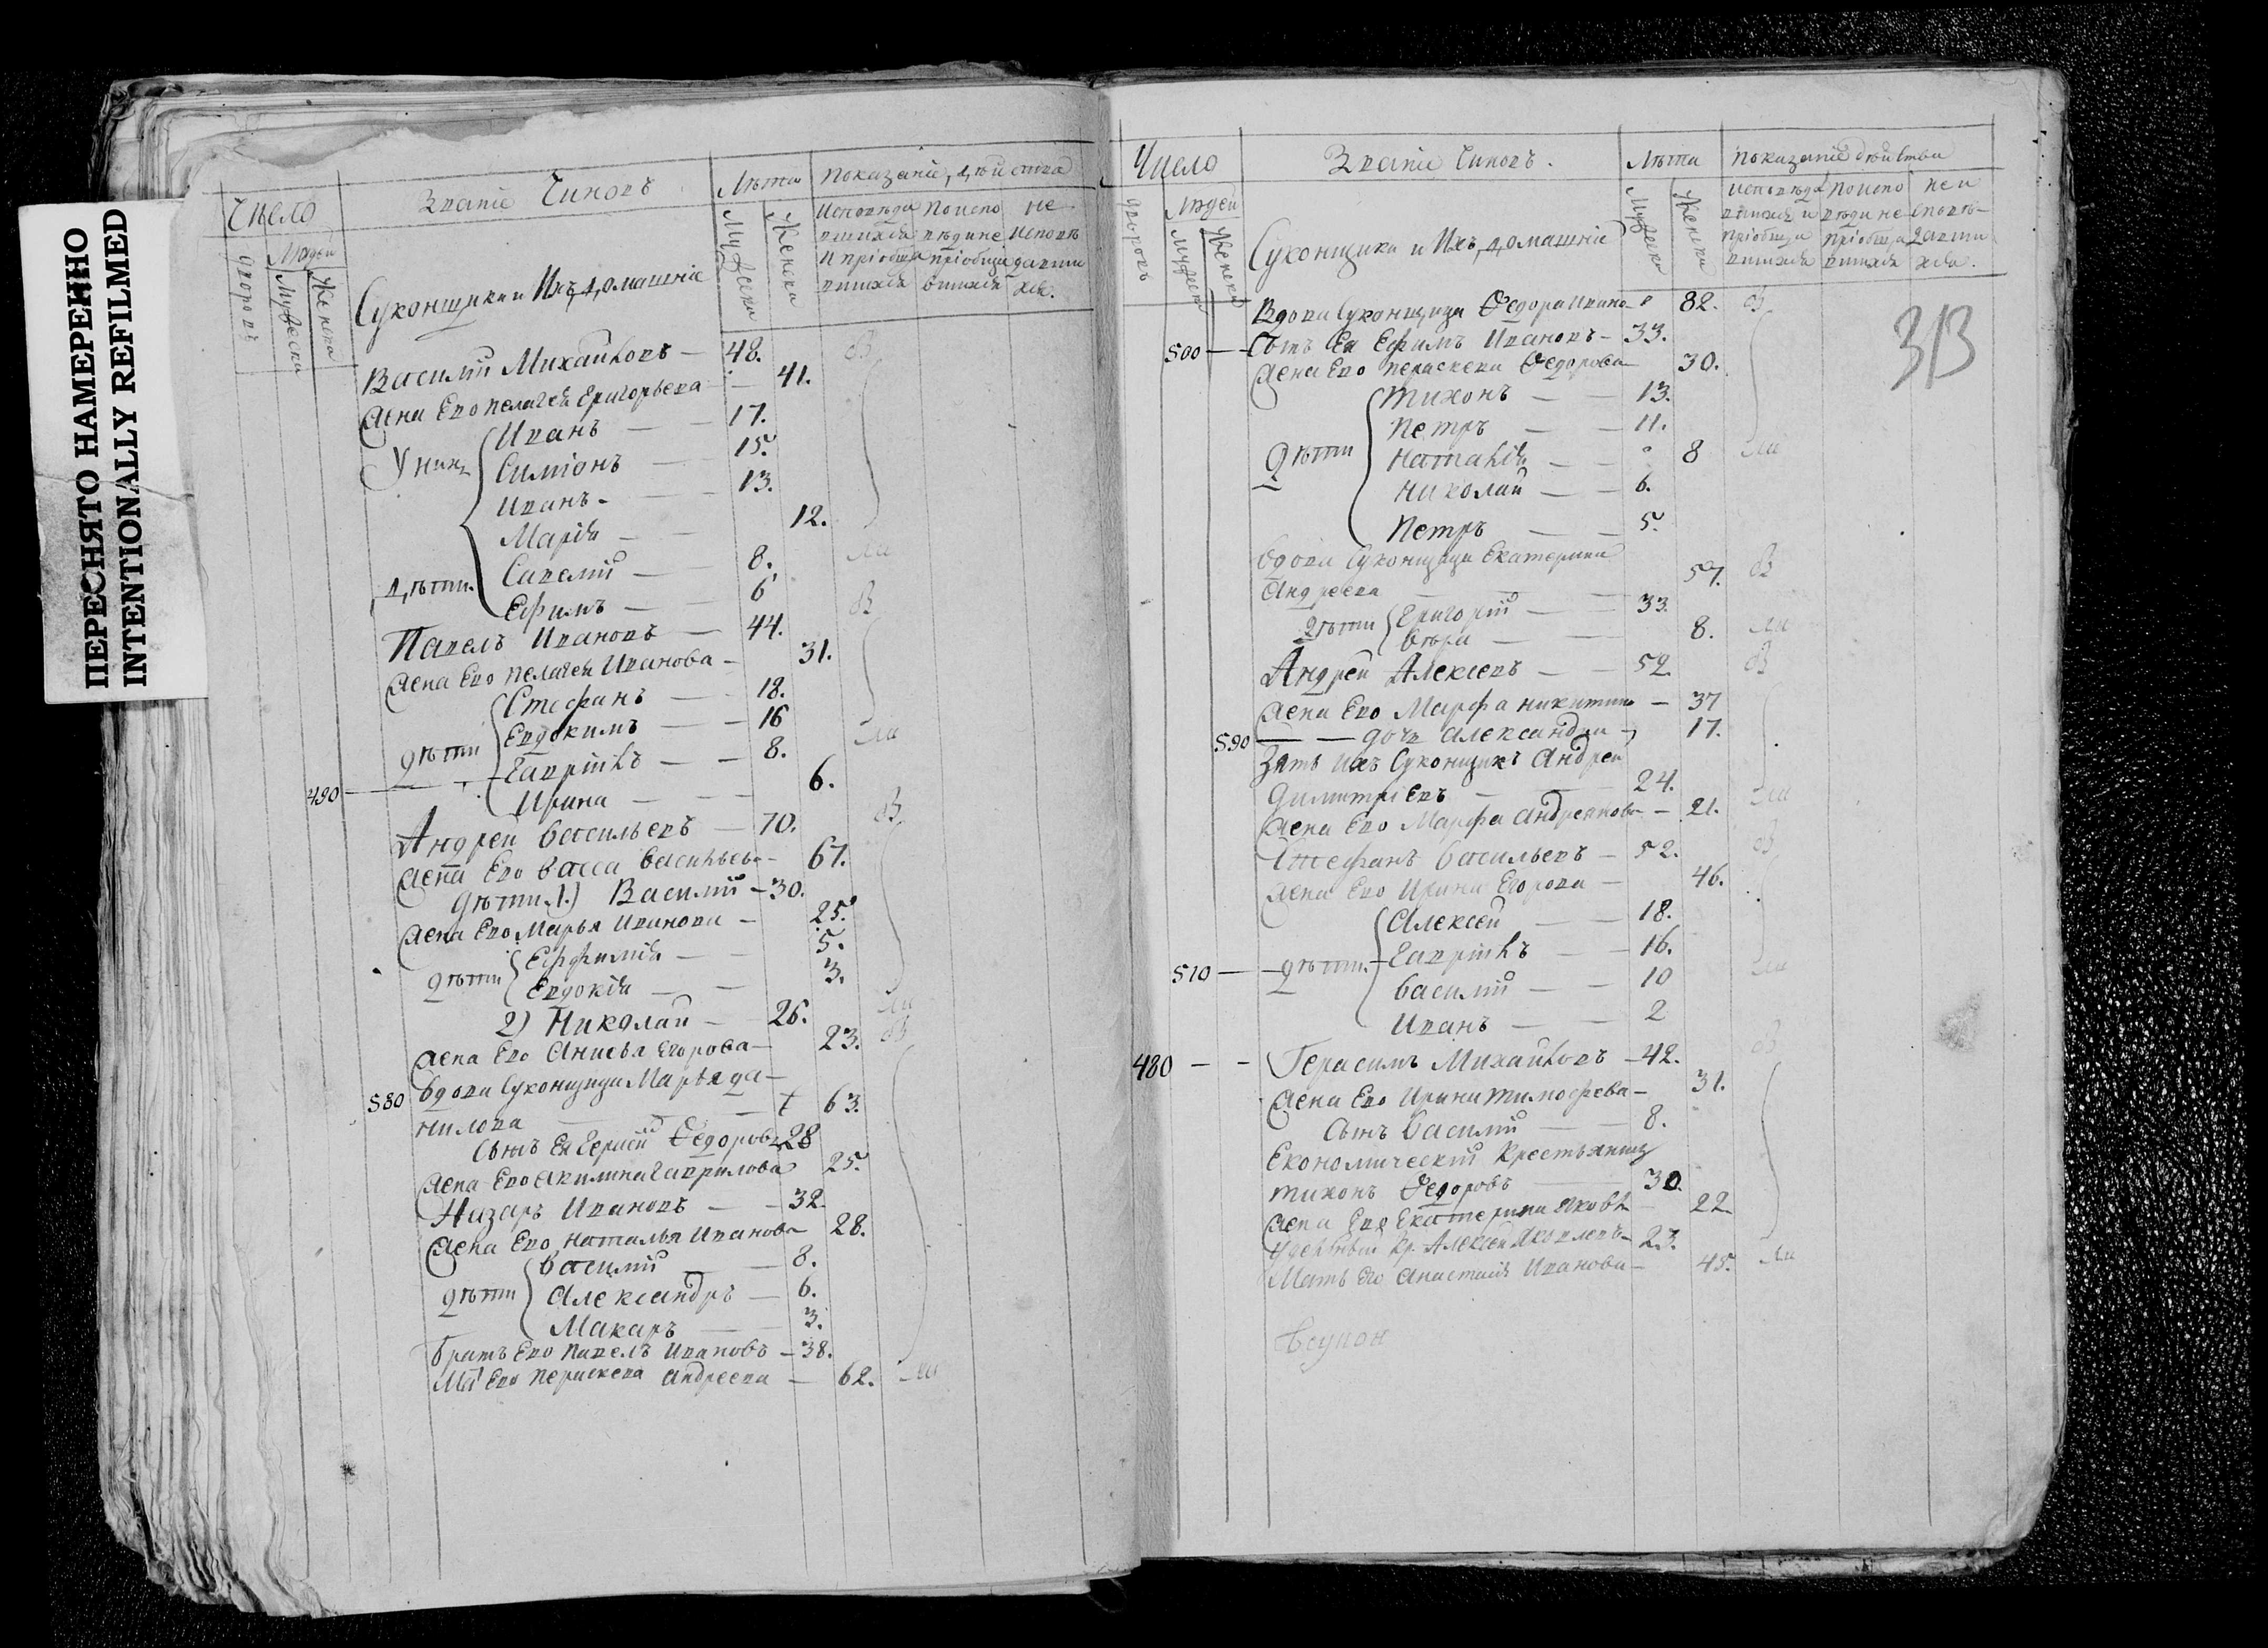 ПЕРЕСНЯТО НАМЕРЕННО
INTENTIONALLY REFILMED
Число
Званіе Чиновъ
Лѣта
Показаніе дѣйства
Дворовъ
Людей
Мужеска
Женска
Суконщики и Ихъ домашніе
Мужеска
Женска
Исповѣдавшихся и пріобщавшихся
По исповѣди не пріобщавшихся
Не исповѣдавшихся.
Василій Михайловъ — 48.
Жена Ево Пелагея Григорьева — 41.
У них
Иванъ — 17.
Симіонъ — 15.
Иванъ — 13.
Марія — 12.
дѣти.
Савелій — 8.
Ефимъ — 6
Павелъ Ивановъ — 44.
Жена Ево Пелагея Иванова — 31.
дѣти
Стефанъ — 18.
Евдокимъ — 16
Гавріилъ — 8.
490
Ирина — 6.
Андрей Васильевъ — 70.
Жена Ево Васса Васильева — 67.
дѣти 1.) Василій — 30.
Жена Ево Марья Иванова — 25.
дѣти
Еффимія — 5.
Евдокія — 3.
2) Николай — 26.
Жена Ево Анисья Егорова — 23.
580
Вдова Суконщица Марья Да-
нилова — 63.
Сынъ Ея Сергей Ѳедоровъ 28
Жена Ево Акилина Гаврилова 25.
Назаръ Ивановъ — 32.
Жена Ево Наталья Иванова 28.
дѣти
Василій — 8.
Александръ — 6.
Макаръ — 3.
Братъ Ево Павелъ Ивановъ — 38.
Мать Ево Пераскева Андреева — 62.
Число
Званіе Чиновъ.
Лѣта
Показаніе дѣйства
Дворовъ
Людей
Мужеска
Женска
Суконщики и Ихъ домашніе
Мужеска
Женска
Исповѣдавшихся и пріобщавшихся
По исповѣди не пріобщавшихся
Не исповѣдавшихся.
313
Вдова Суконщица Ѳедора Ивано 82.
500
Сынъ Ея Ефимъ Ивановъ — 33.
Жена Ево Пераскева Ѳедорова — 30.
дѣти
Тихонъ — 13.
Петръ — 11.
Наталія — 8
Николай — 6.
Петръ — 5.
Вдова Суконщица Екатерина
Андреева — 57.
дѣти
Григорій — 33.
Вѣра — 8.
Андрей Алексеевъ — 52.
Жена Ево Марфа Никитина — 37
590
дочь Александра — 17.
Зять Ихъ Суконщикъ Андрей
Димитріевъ — 24.
Жена Ево Марфа Андреянова — 21.
Стефанъ Васильевъ — 52.
Жена Ево Ирина Егорова — 46.
дѣти.
Алексей — 18.
510
Гавріилъ — 16.
Василій — 10
Иванъ — 2
480
Герасимъ Михайловъ — 42.
Жена Ево Ирина Тимофеева — 31.
Сынъ Василій — 8.
Економический Крестьянинъ
Тихонъ Ѳедоровъ — 30.
Жена Ево Екатерина Яковл 22
Удельный Кр. Алексей Яковлевъ — 23.
Мать Его Анастасія Иванова — 45.